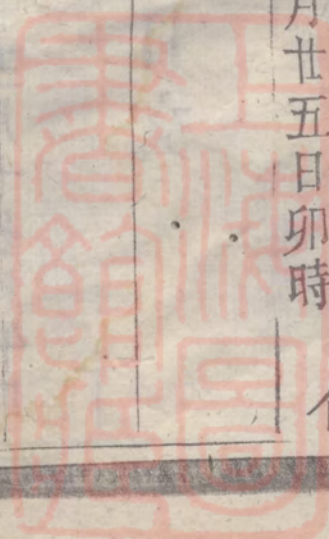 月廿五日卯時
上海圖
書館藏